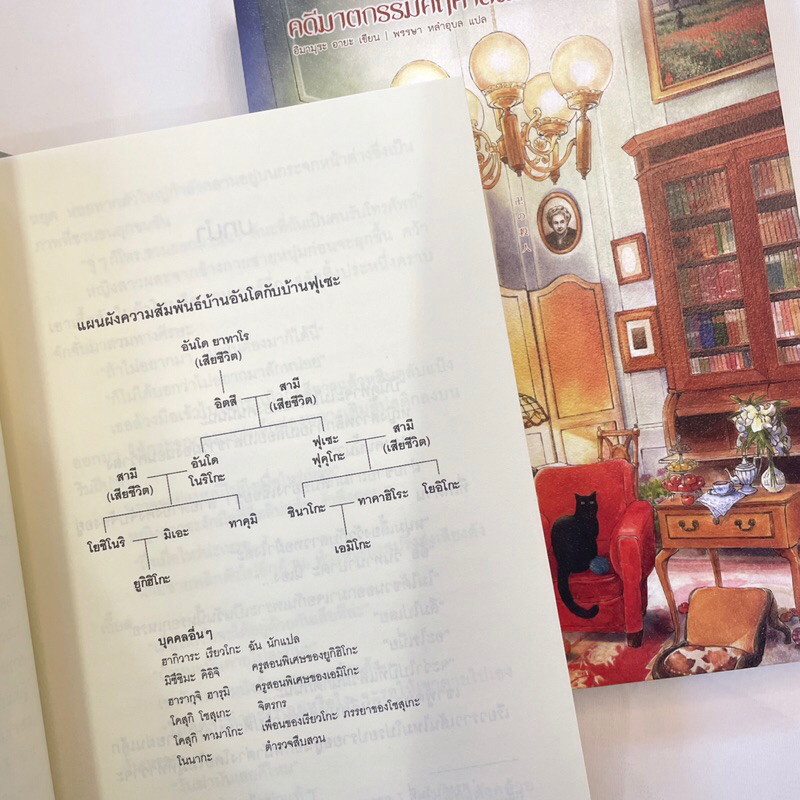 คดีฆาตกรรมคฤหาสน์
อิมามุระ อายะ เขียน | พรรษา หลำอุบล แปล
แผนผังความสัมพันธ์บ้านอันโดกับบ้านฟุเซะ
อันโด ยาทาโร
(เสียชีวิต)
อิตสึ
สามี
(เสียชีวิต)
สามี
(เสียชีวิต)
อันโด
โนริโกะ
ฟุเซะ
ฟุคุโกะ
สามี
(เสียชีวิต)
โยชิโนริ
มิเอะ
ทาคุมิ
ชินาโกะ
ทาคาฮิโระ
โยอิโกะ
ยูกิฮิโกะ
เอมิโกะ
บุคคลอื่นๆ
ฮากิวาระ เรียวโกะ ฉัน นักแปล
มิซึชิมะ คิอิจิ ครูสอนพิเศษของยูกิฮิโกะ
ฮารากุจิ ฮารุมิ ครูสอนพิเศษของเอมิโกะ
โคสุกิ โชสุเกะ จิตรกร
โคสุกิ ทามาโกะ เพื่อนของเรียวโกะ ภรรยาของโชสุเกะ
โนนากะ ตำรวจสืบสวน